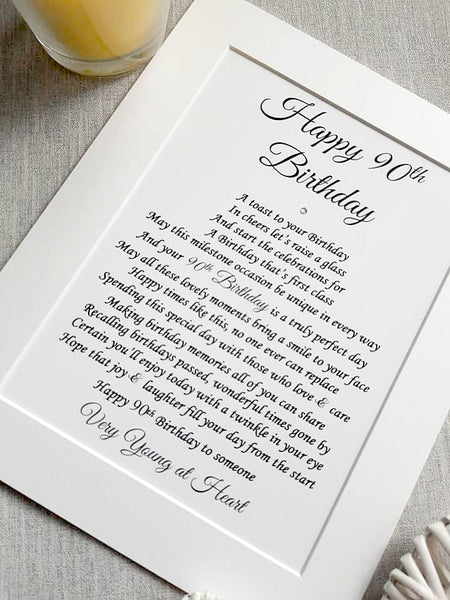 Happy 90th
Birthday
A toast to your Birthday
In cheers let's raise a glass
And start the celebrations for
A Birthday that's first class
May this milestone occasion be unique in every way
And your 90th Birthday is a truly perfect day
May all these lovely moments bring a smile to your face
Happy times like this, no one ever can replace
Spending this special day with those who love & care
Making birthday memories all of you can share
Recalling birthdays passed, wonderful times gone by
Certain you'll enjoy today with a twinkle in your eye
Hope that joy & laughter fill your day from the start
Happy 90th Birthday to someone
Very Young at Heart